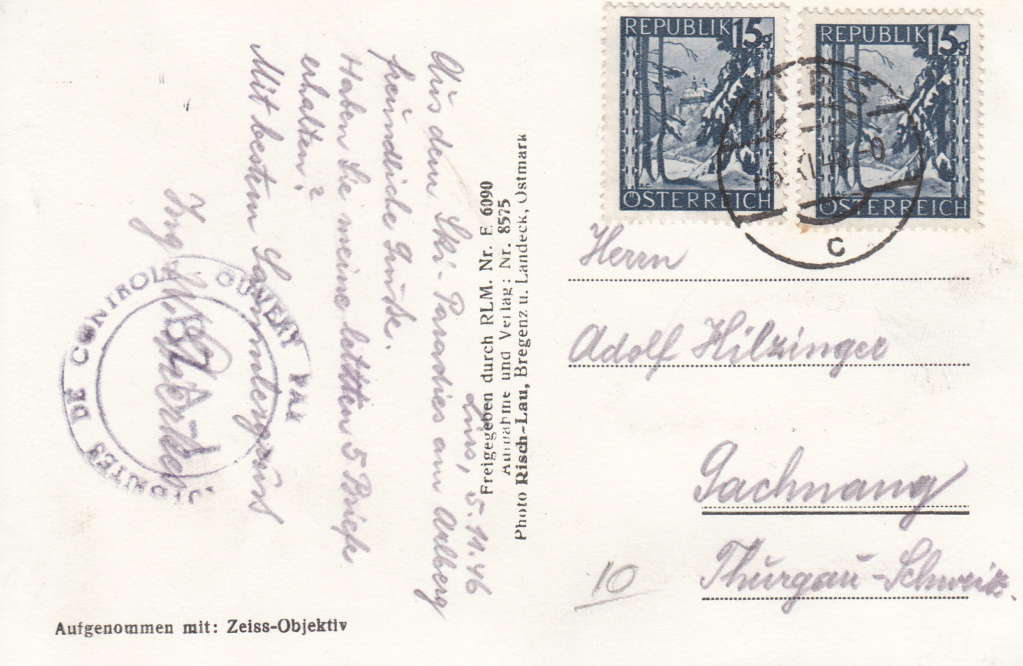 REPUBLIK 15g
ÖSTERREICH
REPUBLIK 15g
ÖSTERREICH
c
Zürs, 5.11.46
Aus dem Ski-Paradies am Arlberg
freundliche Grüße.
Haben Sie meine letzten 5 Briefe
erhalten?
Mit besten Sammlergrüss
Ing.
OUVERT PAR
AUTORITES DE CONTROLE
Freigegeben durch RLM. Nr. E 6090
Aufnahme und Verlag: Nr. 8575
Photo Risch-Lau, Bregenz u. Landeck, Ostmark
Herrn
Adolf Hilzinger
Gachnang
Thurgau-Schweiz.
10
Aufgenommen mit: Zeiss-Objektiv